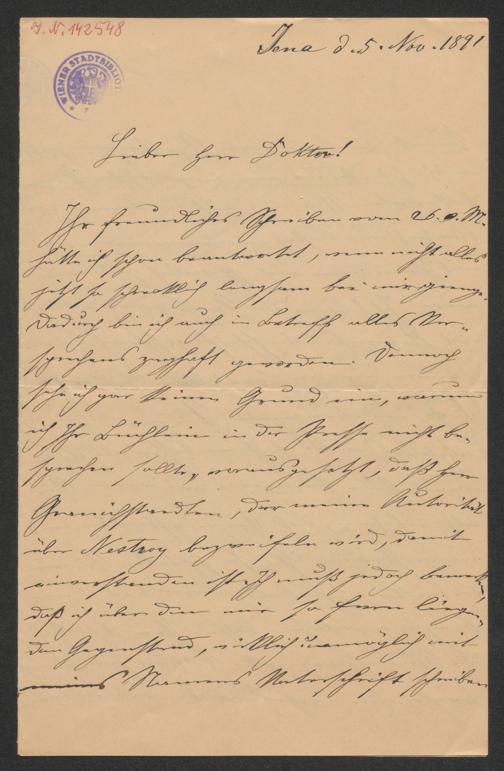 J. N. 142548
WIENER STADTBIBLIOT
Jena d. 5. Nov. 1891
Lieber Herr Doktor!
Ihr freundliches Schreiben vom 26. v. M.
hätte ich schon beantwortet, wenn nicht alles
jetzt so schrecklich langsam bei mir gienge.
Dadurch bin ich auch in Betreff alles Ver-
sprechens zaghaft geworden. Dennoch
sehe ich gar keinen Grund ein, warum
ich Ihr Büchlein in der Presse nicht be-
sprechen sollte, vorausgesetzt, daß Herr
Granichstaedten, der meine Autorität
über Nestroy bezweifeln wird, damit
einverstanden ist. Ich muß jedoch bemerken,
daß ich über den mir so fern liegen-
den Gegenstand, wirklich unmöglich mit
meines Namens Unterschrift schreiben